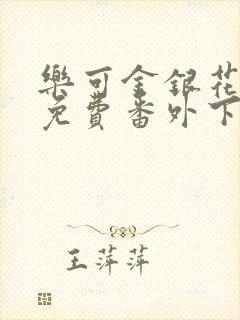 樂可金銀花
免費番外下
王萍萍